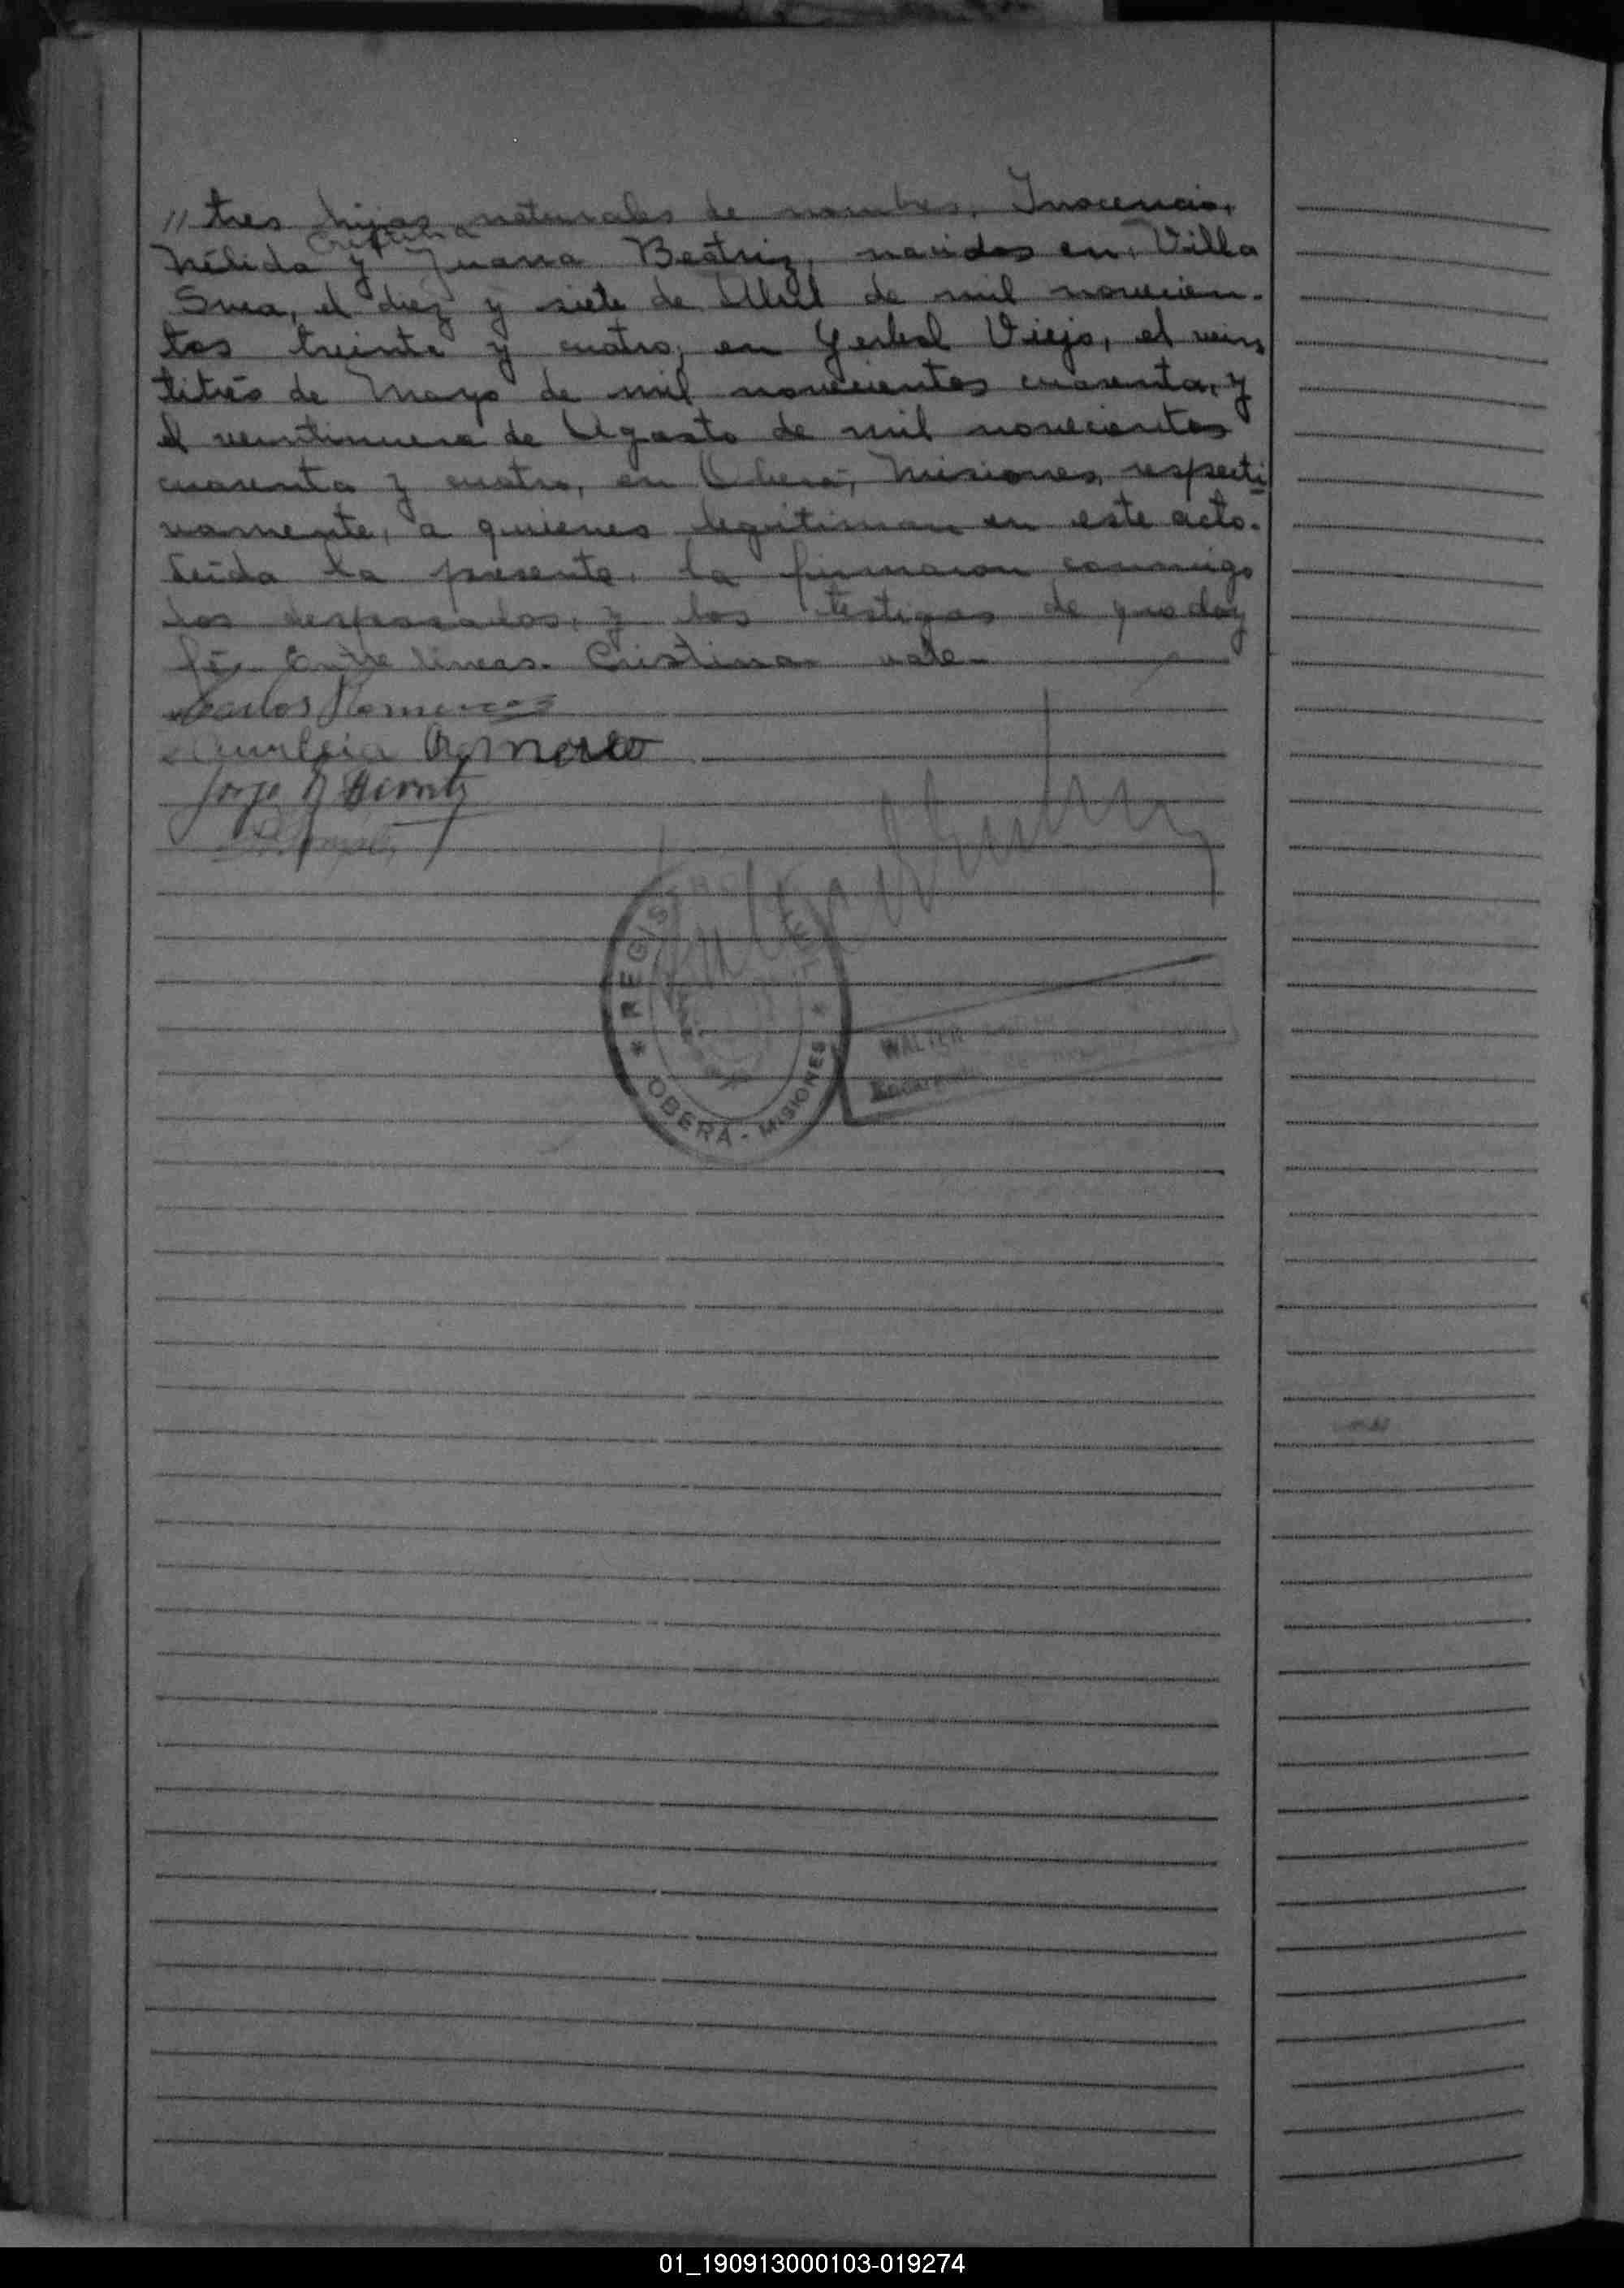 // tres hijos naturales de nombres, Inocencio,
Cristina
Nélida y Juana Beatriz, nacidos en, Villa
Svea, el diez y siete de Abril de mil novecien-
tos treinta y cuatro, en Yerbal Viejo, el vein
titrés de Mayo de mil novecientos cuarenta, y
el veintinueve de Agosto de mil novecientos
cuarenta y cuatro, en Oberá, Misiones, respecti
vamente, a quienes legitiman en este acto.
Leída la presente, la firmaron conmigo
los desposados, y los testigos de que doy
fé. Entre líneas. Cristina vale.
Carlos
Aurelia
Jorge
REGISTRO
OBERÁ - MISIONES
WALTER
Encargado
01_190913000103-019274